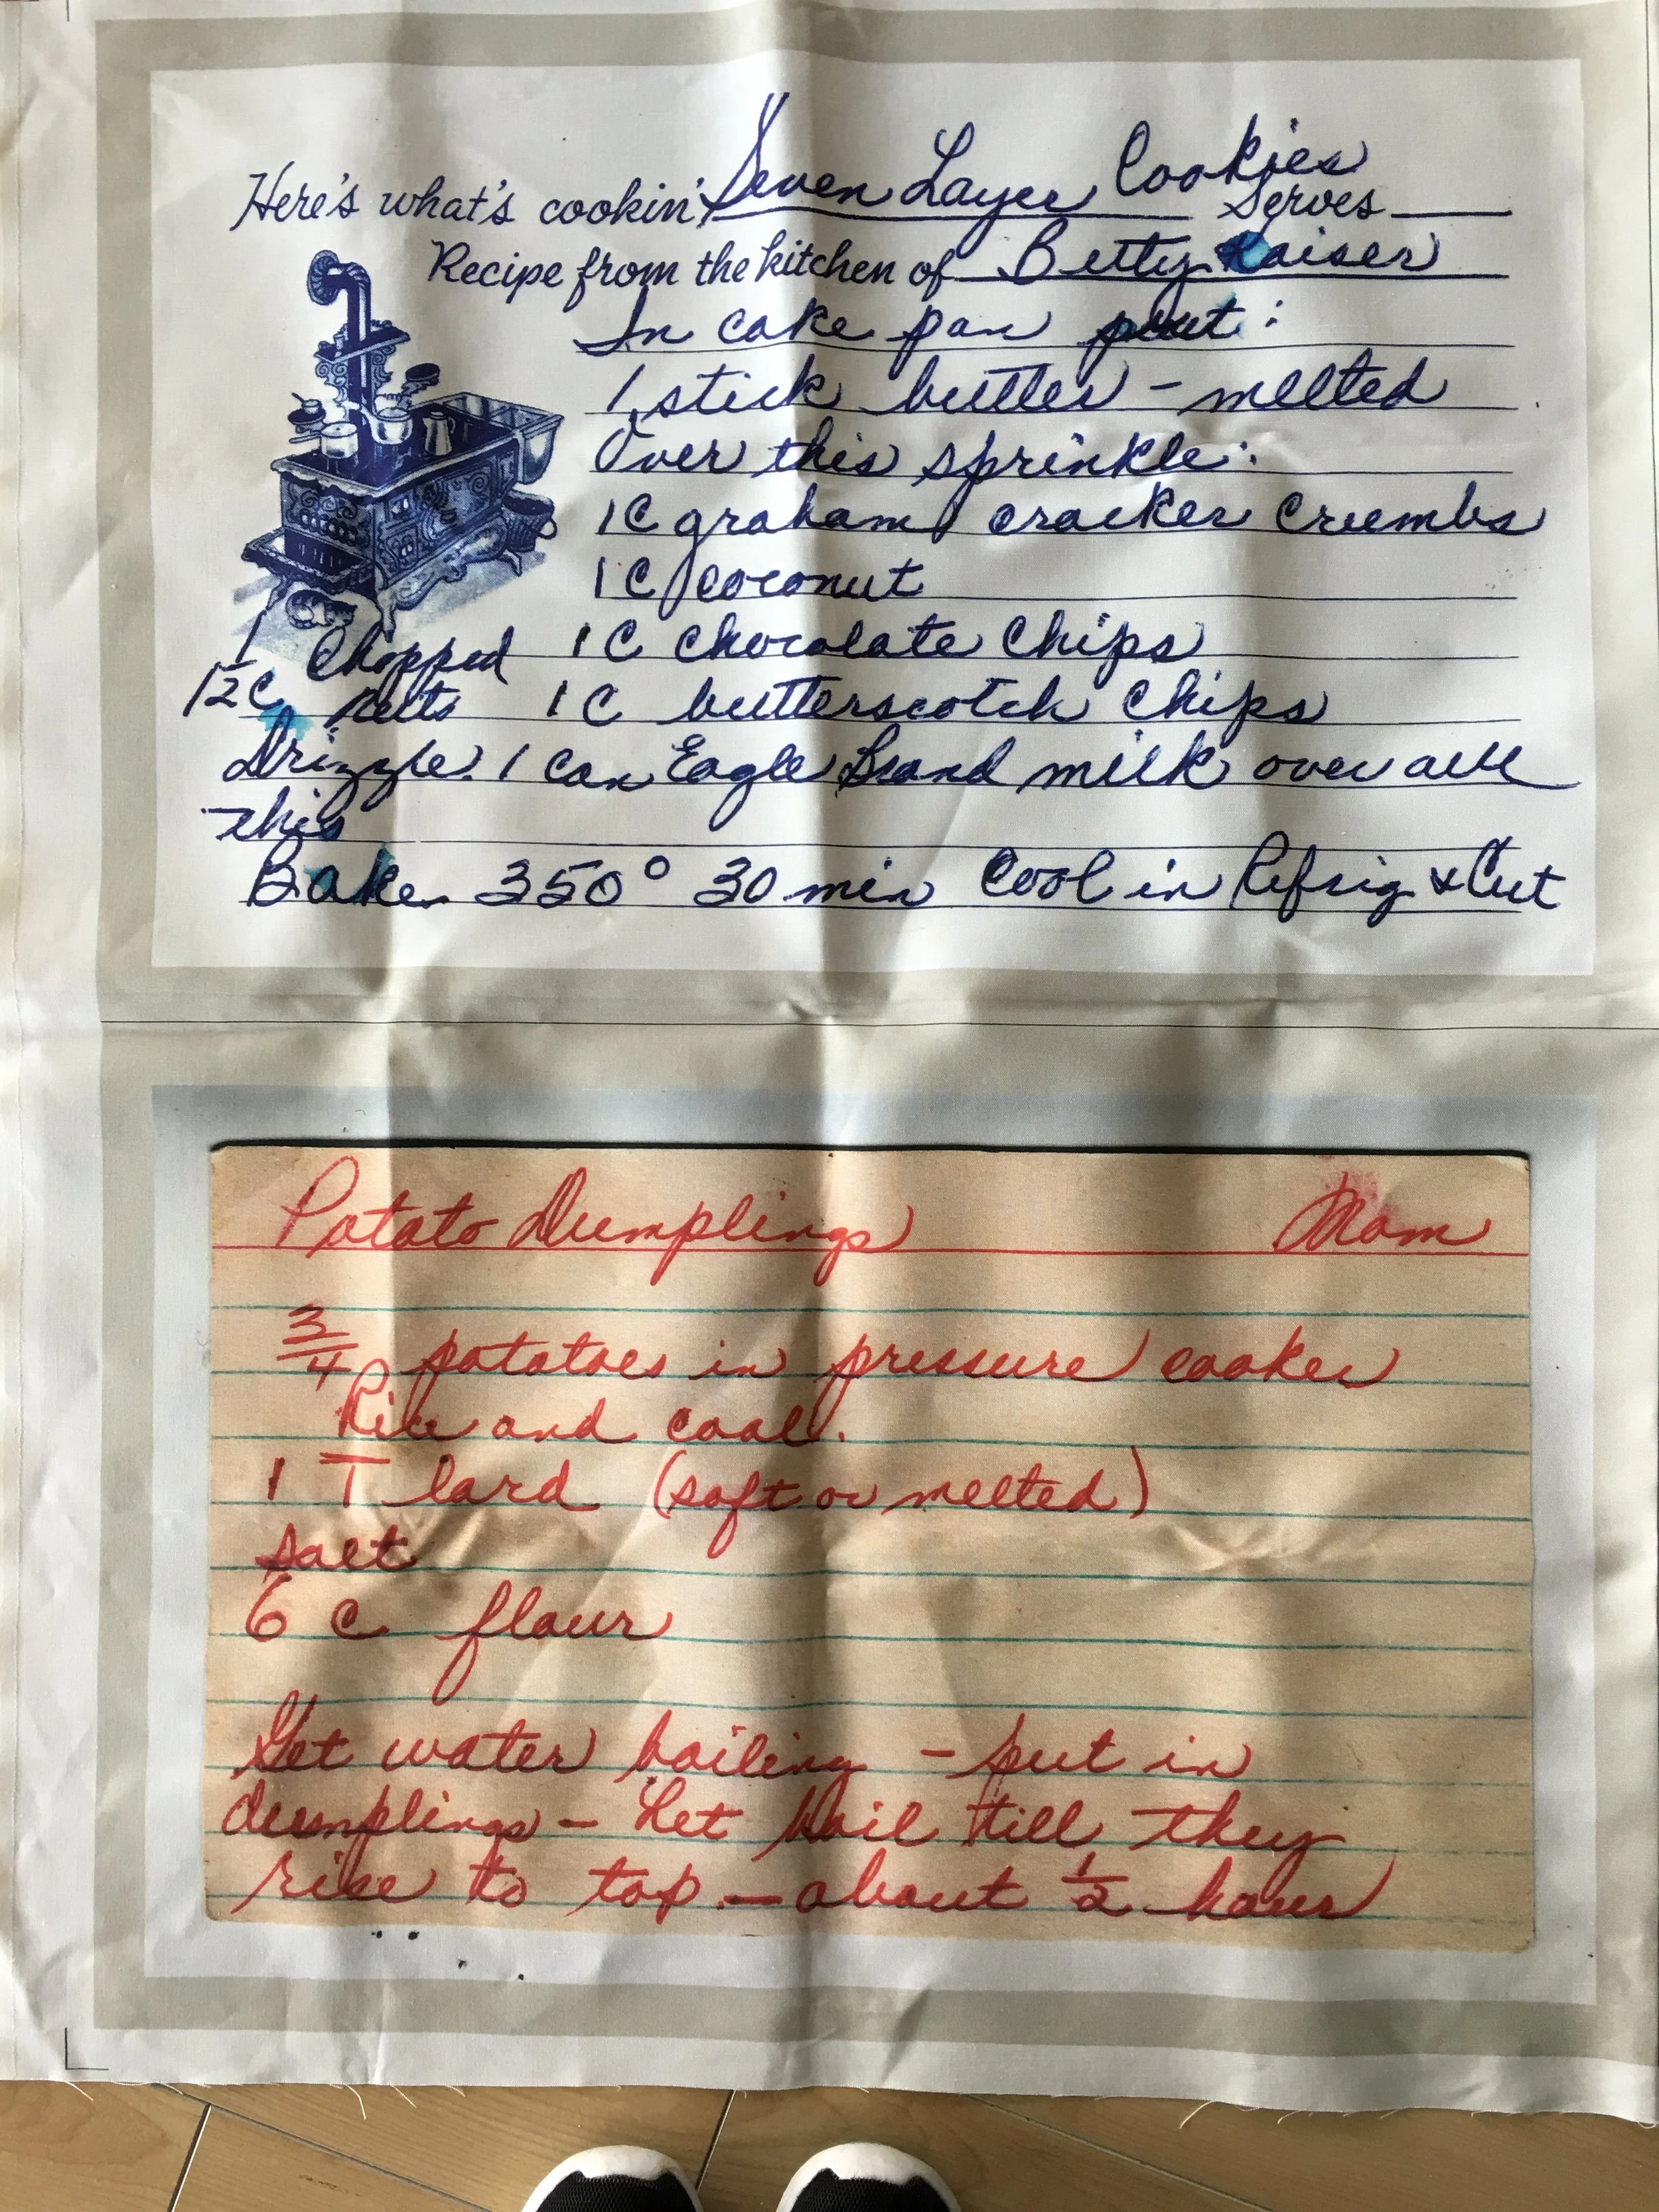 Here's what's cookin' Seven Layer Cookies Serves
Recipe from the kitchen of Betty Kaiser
In cake pan put:
1 stick butter - melted
Over this sprinkle:
1C graham cracker crumbs
1C coconut
1C chocolate chips
1 1/2 C Chopped nuts
1C butterscotch chips
Drizzle 1 can Eagle Brand milk over all
this
Bake 350° 30 min Cool in Refrig & Cut
Potato Dumplings Mom
3/4 potatoes in pressure cooker
Rice and cool.
1 T lard (soft or melted)
salt
6 c flour
Get water boiling - put in
dumplings - Let boil till they
rise to top - about 1/2 hour